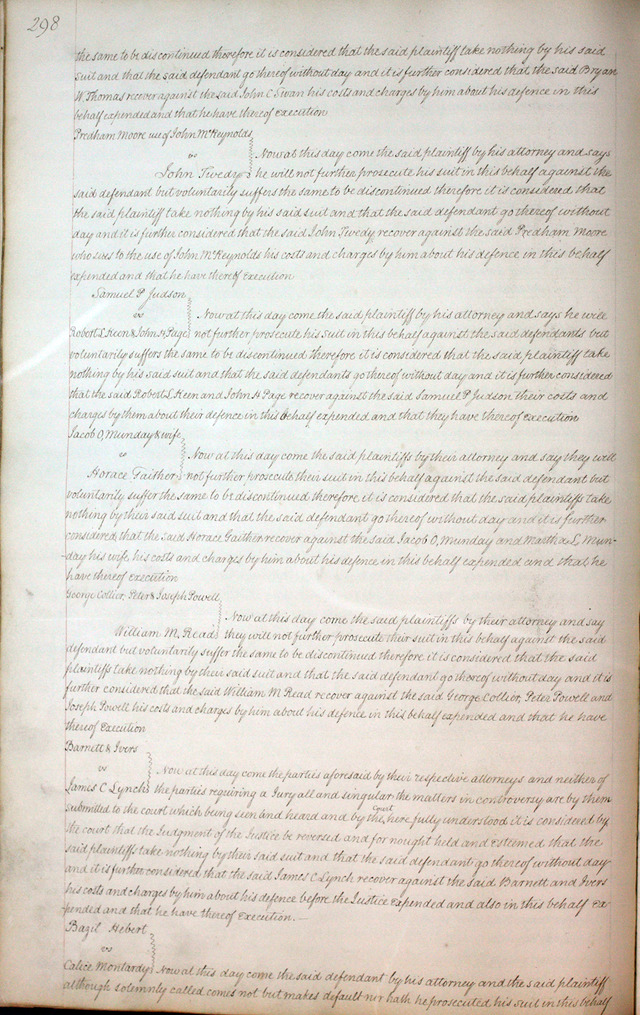 298
the same to be discontinued therefore it is considered that the said plaintiff take nothing by his said
suit and that the said defendant go thereof without day and it is further considered that the said Bryan
W. Thomas recover against the said John C Swan his costs and charges by him about his defence in this
behalf expended and that he have thereof execution
Predham Moore use of John McReynolds
vs Now at this day come the said plaintiff by his attorney and says
John Tvedy he will not further prosecute his suit in this behalf against the
said defendant but voluntarily suffers the same to be discontinued therefore it is considered that
the said plaintiff take nothing by his said suit and that the said defendant go thereof without
day and it is further considered that the said John Tvedy recover against the said Predham Moore
who sues to the use of John McReynolds his costs and charges by him about his defence in this behalf
expended and that he have thereof Execution
Samuel P Judson
vs Now at this day come the said plaintiff by his attorney and says he will
Robert S. Keen & John H Page not further prosecute his suit in this behalf against the said defendants but
voluntarily suffers the same to be discontinued therefore it is considered that the said plaintiff take
nothing by his said suit and that the said defendants go thereof without day and it is further considered
that the said Robert S. Keen and John H Page recover against the said Samuel P Judson their costs and
charges by them about their defence in this behalf expended and that they have thereof execution
Jacob O, Munday & wife
vs Now at this day come the said plaintiffs by their attorney and say they will
Horace Gaither not further prosecute their suit in this behalf against the said defendant but
voluntarily suffer the same to be discontinued therefore it is considered that the said plaintiffs take
nothing by their said suit and that the said defendant go thereof without day and it is further
considered, that the said Horace Gaither recover against the said Jacob O, Munday and Martha L, Mun-
day his wife, his costs and charges by him about his defence in this behalf expended and that he
have thereof execution
George Collier, Peter & Joseph Powell
vs Now at this day come the said plaintiffs by their attorney and say
William M. Read they will not further prosecute their suit in this behalf against the said
defendant but voluntarily suffer the same to be discontinued therefore it is considered that the said
plaintiffs take nothing by their said suit and that the said defendant go thereof without day and it is
further considered that the said William M Read recover against the said George Collier, Peter Powell and
Joseph Powell his costs and charges by him about his defence in this behalf expended and that he have
thereof Execution
Barnett & Ivers
vs Now at this day come the parties aforesaid by their respective attorneys and neither of
James C Lynch the parties requiring a Jury all and singular the matters in controversy are by them
submitted to the court which being seen and heard and by the Court here fully understood it is considered by
the court that the Judgment of the Justice be reversed and for nought held and esteemed that the
said plaintiffs take nothing by their said suit and that the said defendant go thereof without day
and it is further considered that the said James C Lynch recover against the said Barnett and Ivers
his costs and charges by him about his defence before the Justice expended and also in this behalf ex-
pended and that he have thereof Execution.—
Bazil Hebert
vs
Calice Montardy Now at this day come the said defendant by his attorney and the said plaintiff
although solemnly called comes not but makes default nor hath he prosecuted his suit in this behalf